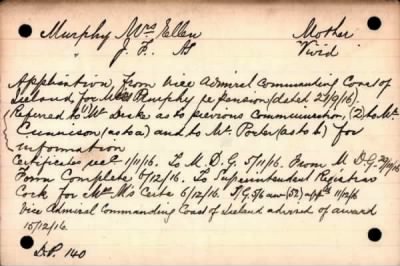 Murphy Mrs Ellen Mother
J. F. AB Vivid
Application from Vice Admiral Commanding Coast of
Ireland, for Mrs Murphy re pension (dated 27/9/16).
Refered to (1) Mr Duke as to previous Communication, (2) to Mr
Cunnison (as to a) and to Mr. Porter (as to b) for
information
Certificates recd 1/11/16. To M.D.G. 5/11/16. From M.D.G.
Form Complete 5/12/16. To Superintendent Registrar
Cork for Mrs M's Certe 6/12/16. 5/6 11/12/16
Vice Admiral Commanding Coast of Ireland advised of award
15/12/16.
D.P. 140